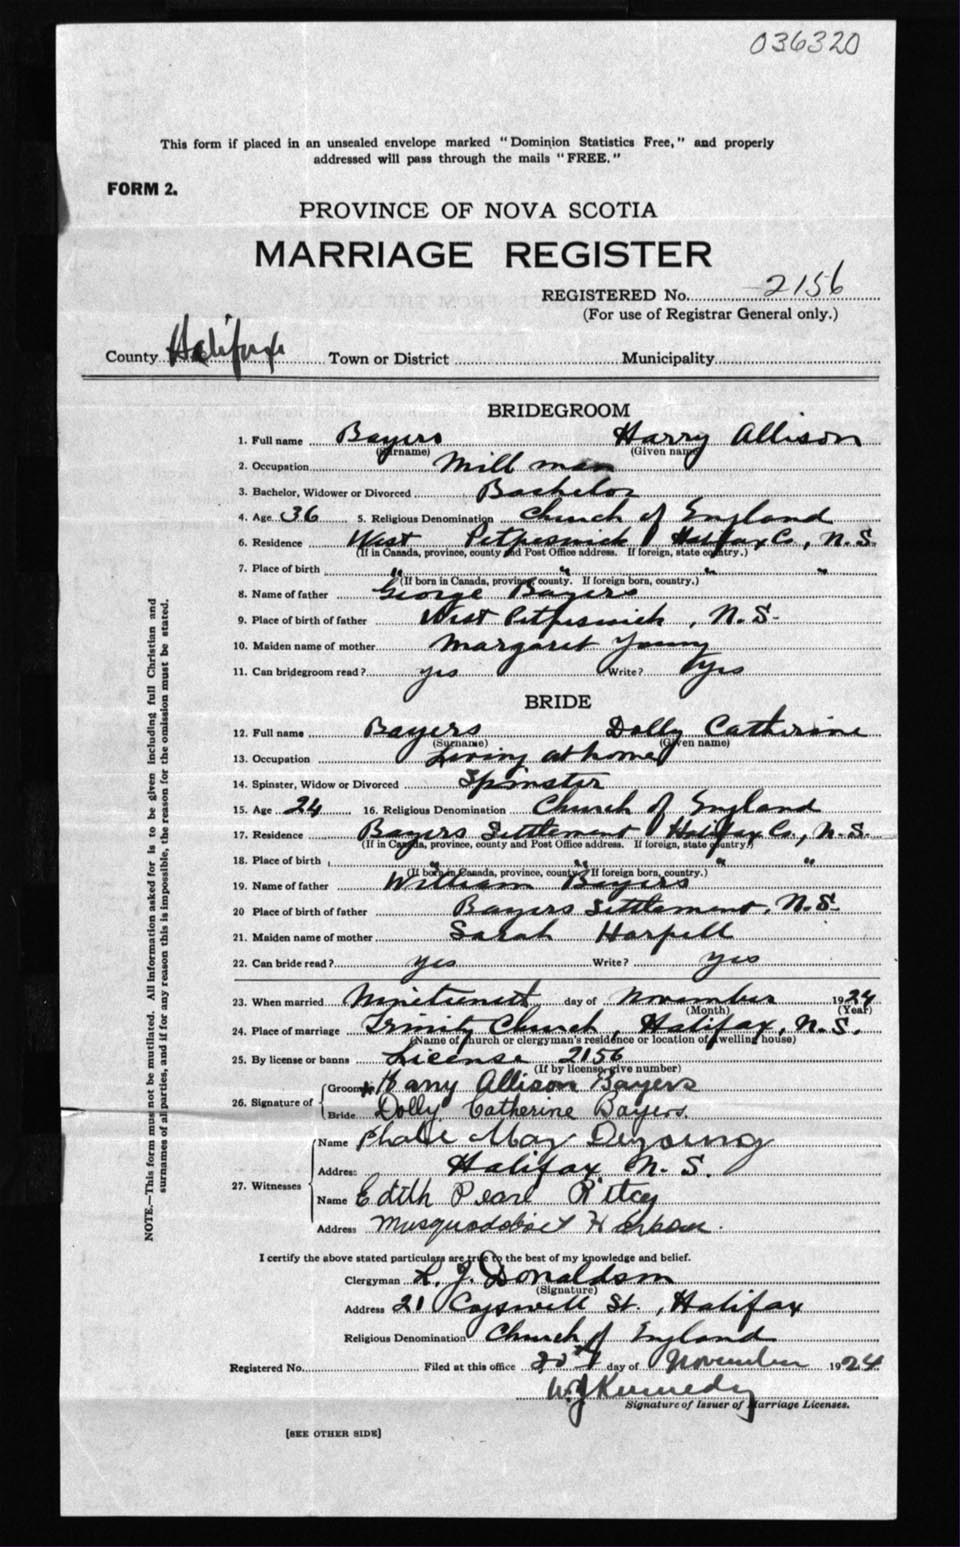 036320
This form if placed in an unsealed envelope marked "Dominion Statistics Free," and properly
addressed will pass through the mails "FREE."
FORM 2.
PROVINCE OF NOVA SCOTIA
MARRIAGE REGISTER
REGISTERED No. 2156
(For use of Registrar General only.)
County Halifax Town or District Municipality
BRIDEGROOM
1. Full name Bayers Harry Allison
(Surname) (Given name)
2. Occupation Mill man
3. Bachelor, Widower or Divorced Bachelor
4. Age 36 5. Religious Denomination Church of England
6. Residence West Petpeswick Halifax Co., N.S.
(If in Canada, province, county and Post Office address. If foreign, state country.)
7. Place of birth " " " "
(If born in Canada, province, county. If foreign born, country.)
8. Name of father George Bayers
9. Place of birth of father West Petpeswick, N.S.
10. Maiden name of mother Margaret Young
11. Can bridegroom read? yes Write? yes
BRIDE
12. Full name Bayers Dolly Catherine
(Surname) (Given name)
13. Occupation Living at home
14. Spinster, Widow or Divorced Spinster
15. Age 24 16. Religious Denomination Church of England
17. Residence Bayers Settlement Halifax Co., N.S.
(If in Canada, province, county and Post Office address. If foreign, state country.)
18. Place of birth " " " "
(If born in Canada, province, county. If foreign born, country.)
19. Name of father William Bayers
20 Place of birth of father Bayers Settlement, N.S.
21. Maiden name of mother Sarah Harpell
22. Can bride read? yes Write? yes
23. When married Nineteenth day of November 1924
(Month) (Year)
24. Place of marriage Trinity Church, Halifax, N.S.
(Name of church or clergyman's residence or location of dwelling house)
25. By license or banns License 2156
(If by license, give number)
26. Signature of
Groom Harry Allison Bayers
Bride Dolly Catherine Bayers.
27. Witnesses
Name May
Address Halifax N.S.
Name Edith Pearl Ritcey
Address Musquodoboit Harbour.
I certify the above stated particulars are true to the best of my knowledge and belief.
Clergyman L. J. Donaldson
(Signature)
Address 21 Cogswell St., Halifax
Religious Denomination Church of England
Registered No. Filed at this office day of November 1924
W.J Kennedy
Signature of Issuer of Marriage Licenses.
[SEE OTHER SIDE]
NOTE.—This form must not be mutilated. All information asked for is to be given including full Christian and
surnames of all parties, and if for any reason this is impossible, the reason for the omission must be stated.